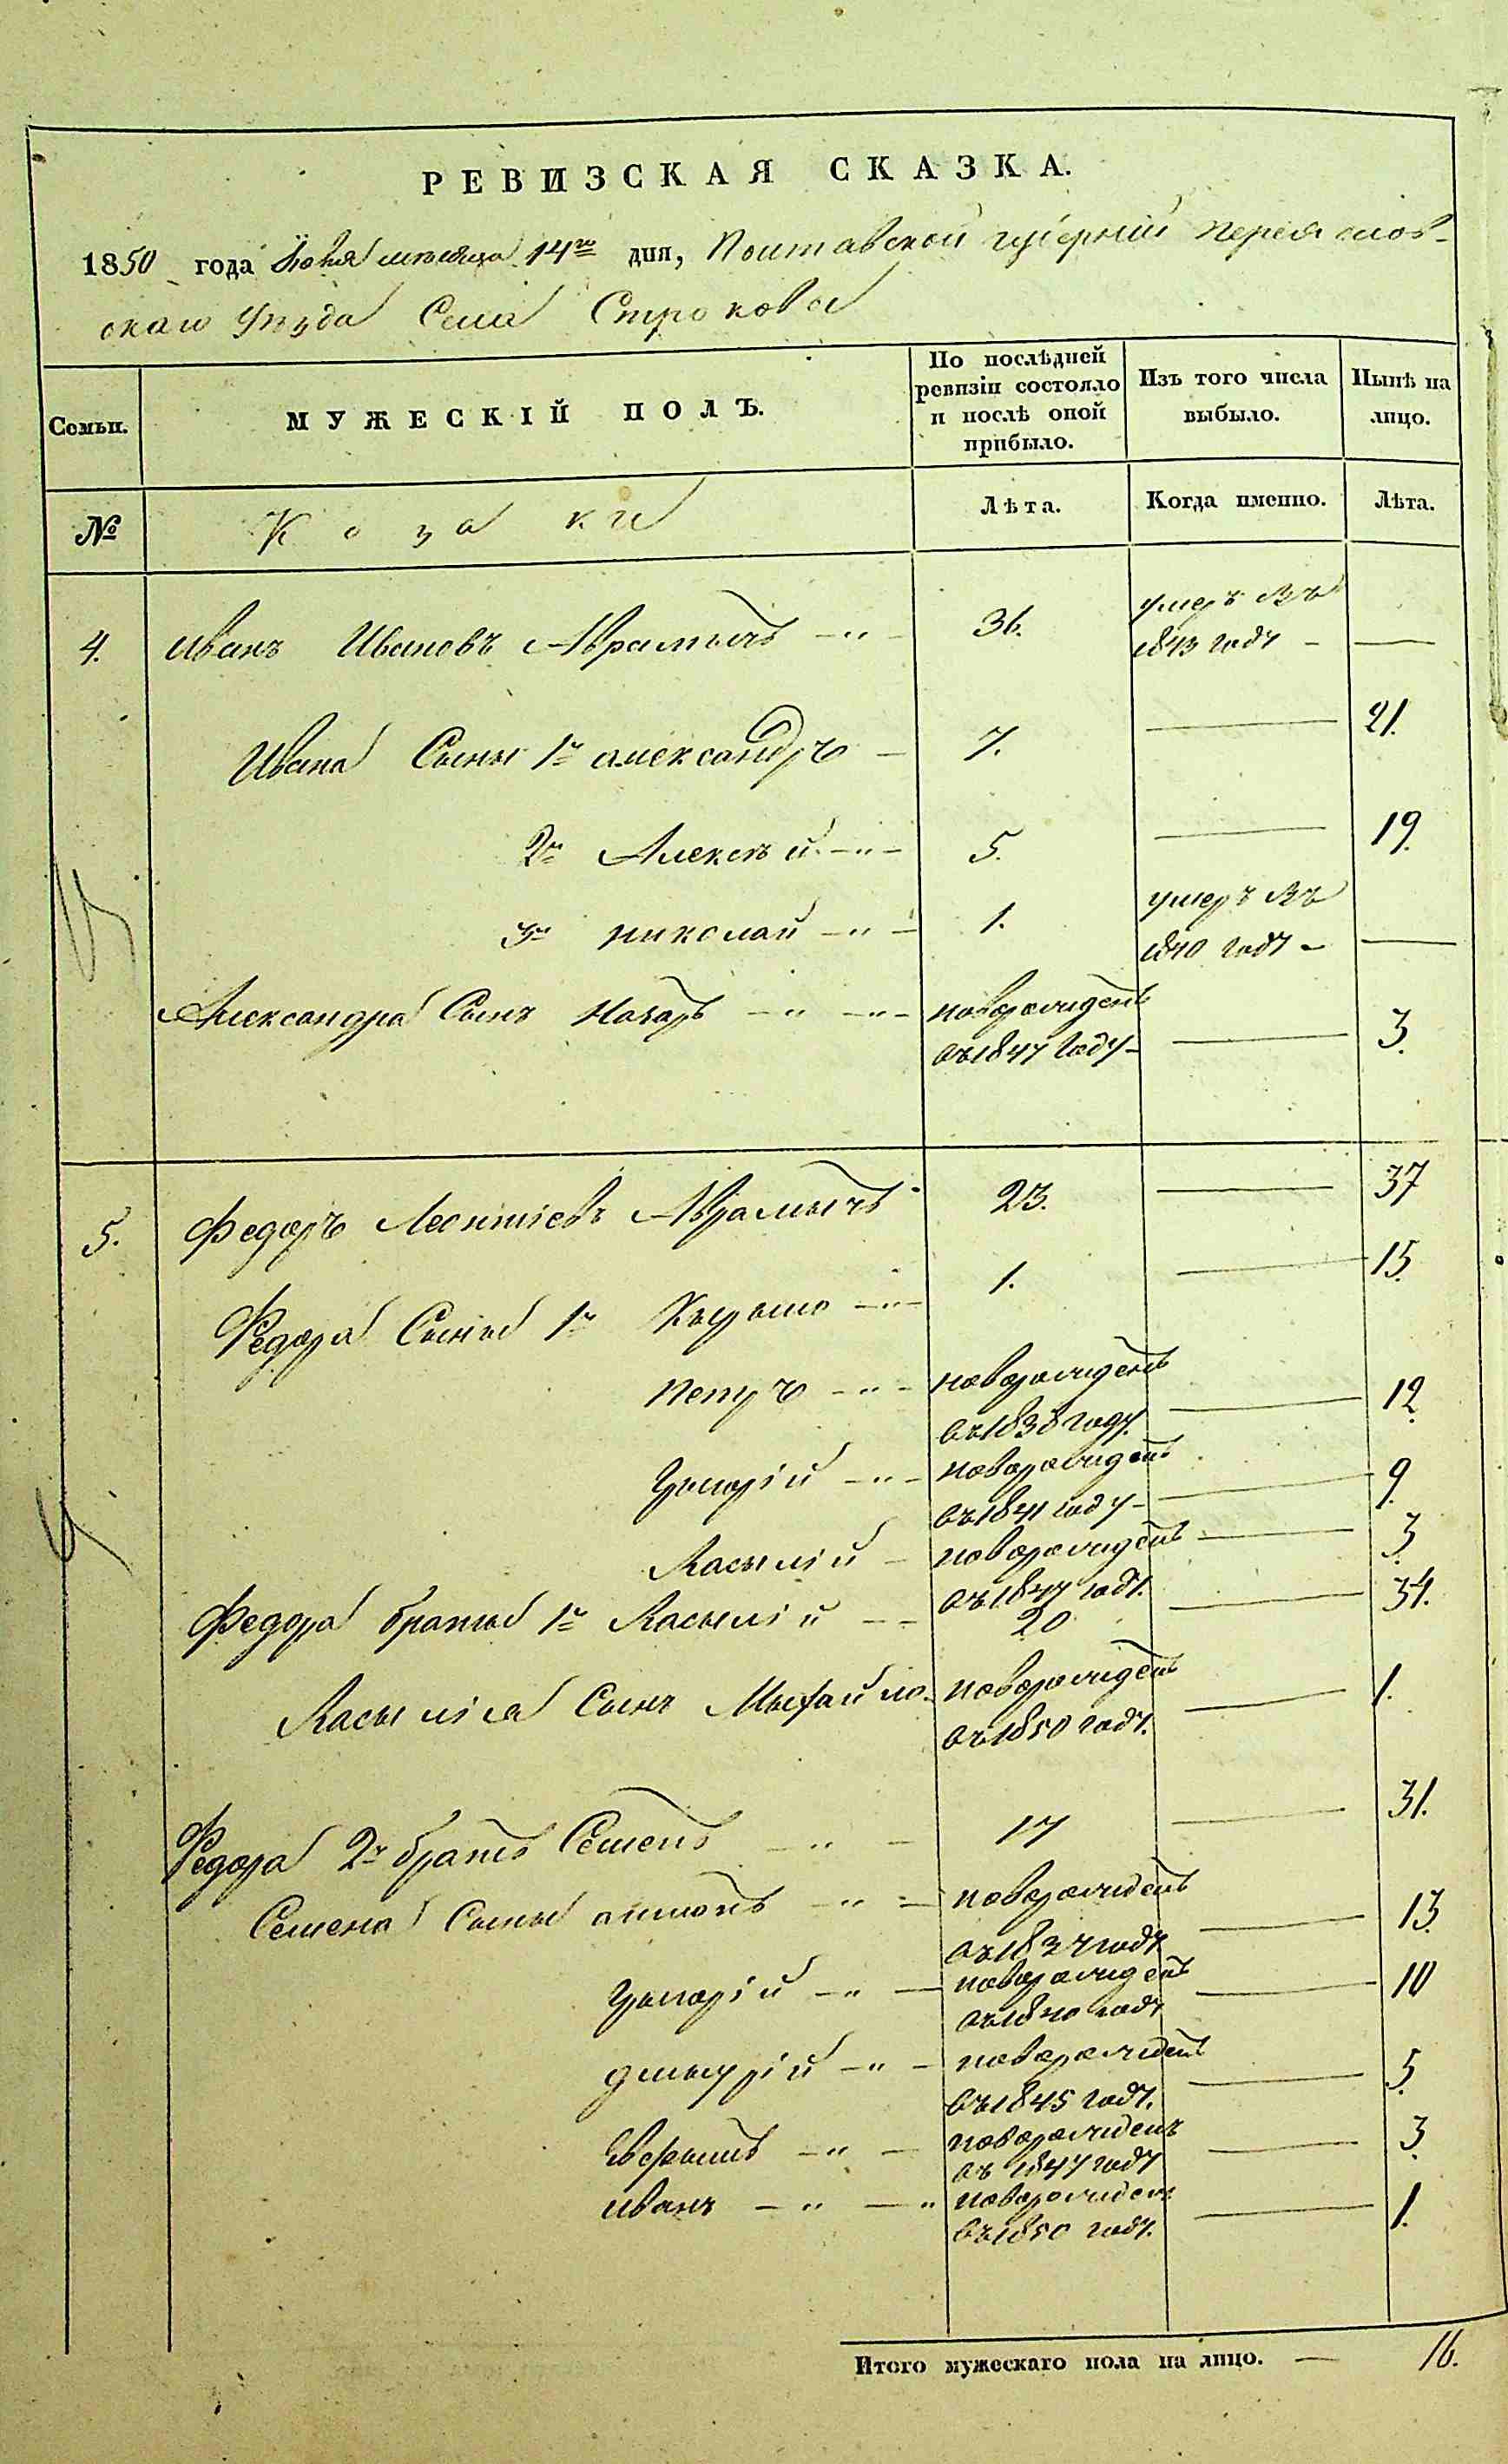 РЕВИЗСКАЯ СКАЗКА.
1850 года Іюня мѣсяца 14го дня, Полтавской губерніи Переяслов-
скаго уѣзда Села Строкова
Семьи.
МУЖЕСКІЙ ПОЛЪ.
По послѣдней ревизіи состояло и послѣ оной прибыло.
Изъ того числа выбыло.
Нынѣ на лицо.
№
Козаки
Лѣта.
Когда именно.
Лѣта.
4. Иванъ Ивановъ Аврамычъ 36. умеръ въ
1843 году —
Ивана Сыны 1й александръ 7. — 21.
2й Алексѣй 5. — 19.
3й николай 1. умеръ въ
1840 году —
Александра Сынъ Назаръ новорожденъ
въ 1847 году — 3.
5. Федоръ Леонтіевъ Аврамычъ 23. — 37
Федора Сыны 1й Кырыло 1. — 15.
петръ новорожденъ
въ 1838 году — 12.
Грыгорій новорожденъ
въ 1841 году — 9.
Васылій новорожденъ — 3.
въ 1847 году.
Федора братья 1й Васылій 20 — 34.
Васылія Сынъ Мыхайло новорожденъ
въ 1850 году. — 1.
Федора 2й братъ Семенъ 17 — 31.
Семена Сыны антонъ новорожденъ
въ 1837 году — 13.
Грыгорій новорожденъ
въ 1840 году — 10
дмытрій новорожденъ
въ 1845 году. — 5.
Ефымъ новорожденъ
въ 1847 году — 3.
иванъ новорожденъ
въ 1850 году. — 1.
Итого мужескаго пола на лицо. — 16.